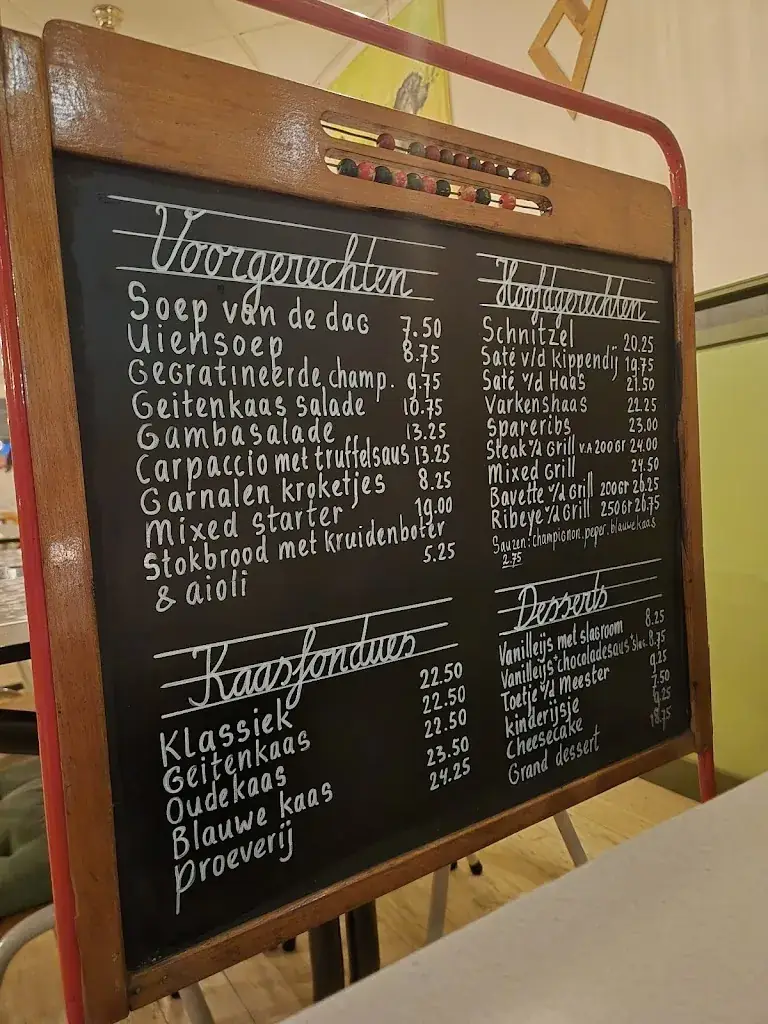 Voorgerechten
Soep van de dag 7.50
Uiensoep 8.75
Gegratineerde champ. 9.75
Geitenkaas salade 10.75
Gambasalade 13.25
Carpaccio met truffelsaus 13.25
Garnalen kroketjes 8.25
Mixed starter 19.00
Stokbrood met kruidenboter
& aioli 5.25
Kaasfondues
Klassiek 22.50
Geitenkaas 22.50
Oudekaas 22.50
Blauwe kaas 23.50
Proeverij 24.25
Hoofdgerechten
Schnitzel 20.25
Saté v/d kippendij 19.75
Saté v/d Haas 21.50
Varkenshaas 22.25
Spareribs 23.00
Steak v/d Grill v.a 200 gr 24.00
Mixed Grill 24.50
Bavette v/d Grill 200 gr 26.25
Ribeye v/d Grill 250 gr 26.75
Sauzen: champignon, peper, blauwe kaas
2.75
Desserts
Vanilleijs met slagroom 8.25
Vanilleijs + chocoladesaus + slag. 8.75
Toetje v/d Meester 9.25
kinderijsje 7.50
Cheesecake 9.25
Grand dessert